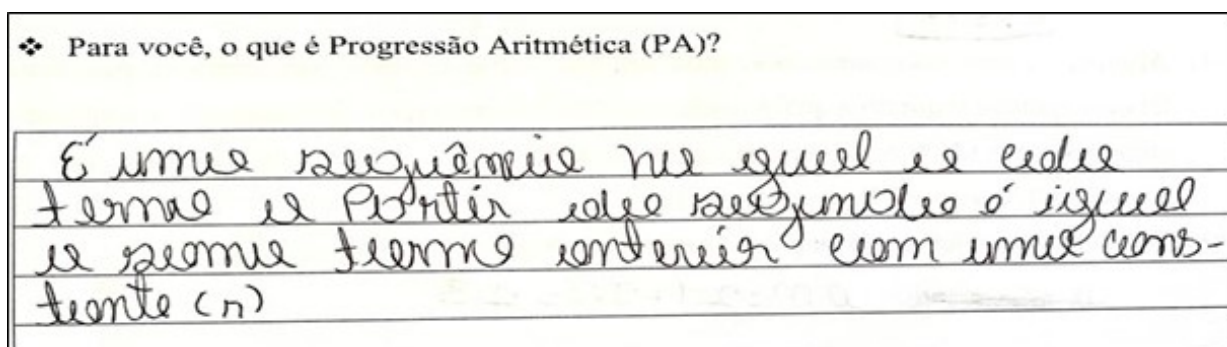 ❖ Para você, o que é Progressão Aritmética (PA)?
É uma sequência na qual a cada
termo a Partir do segundo é igual
a soma termo anterior com uma cons-
tante (r)